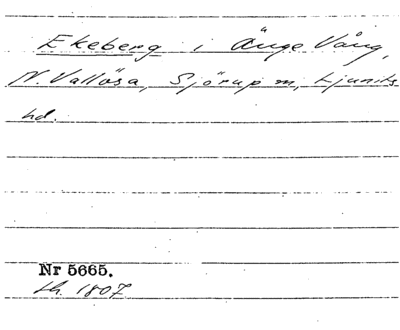 Ekeberg i Änge Vång,
N. Vallösa, Sjörup sn, Ljunits
hd.
Nr 5665.
1807